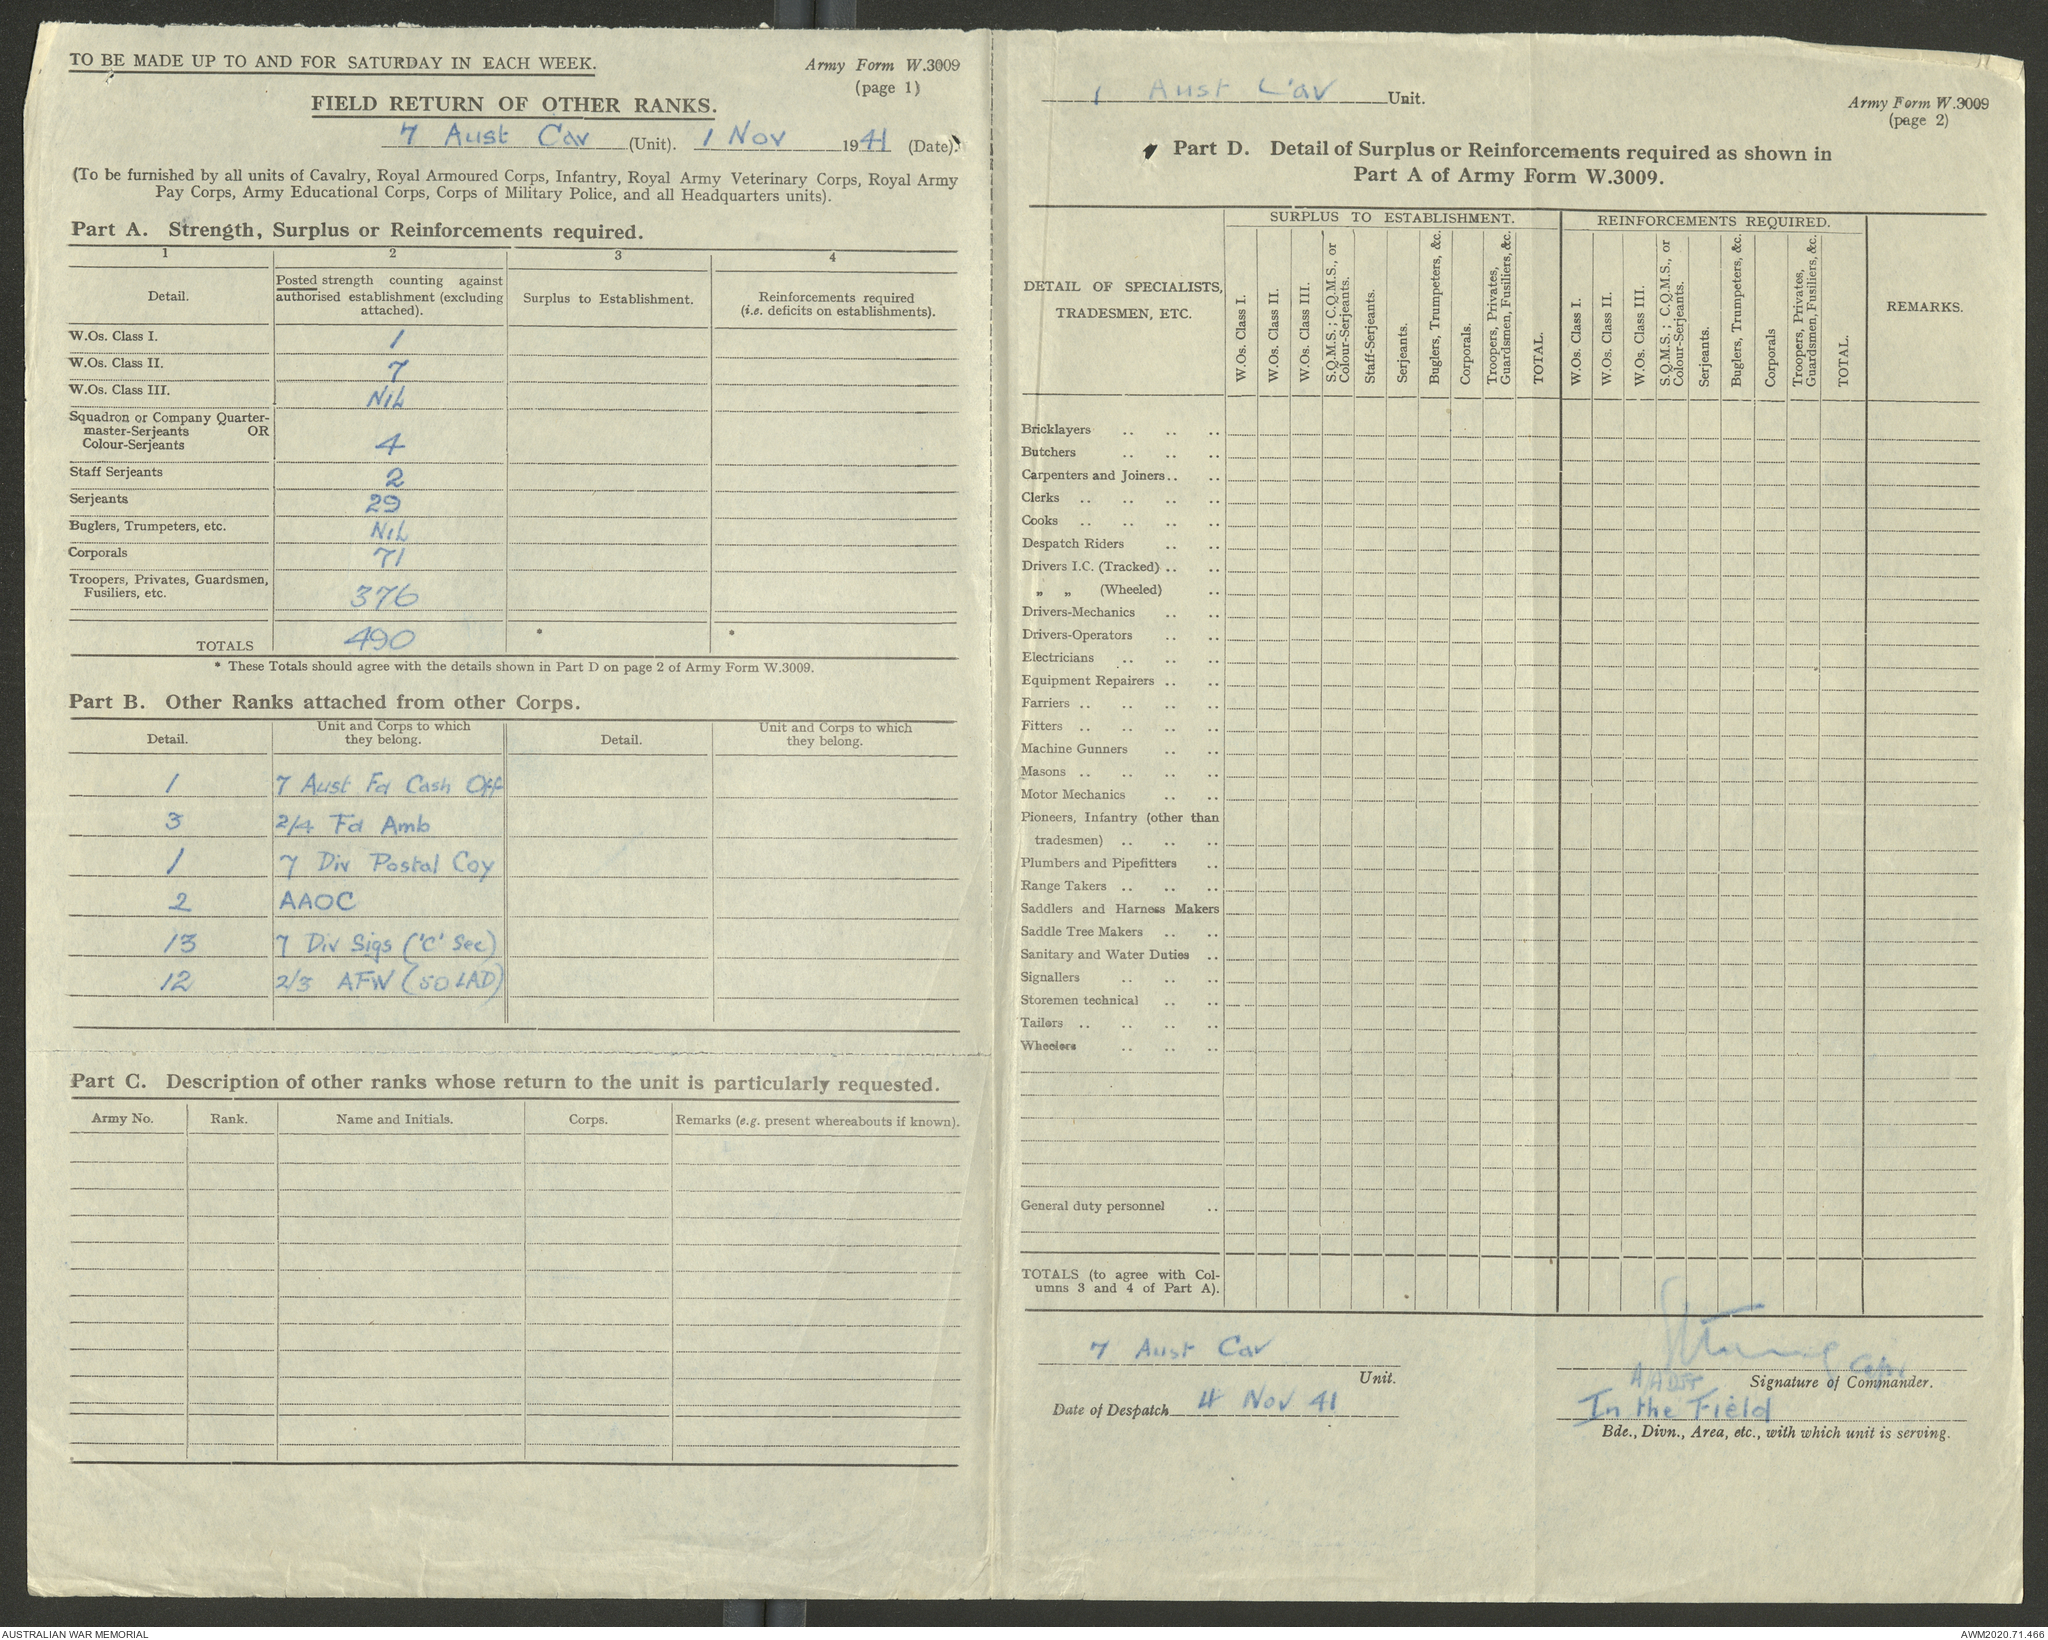 TO BE MADE UP TO AND FOR SATURDAY IN EACH WEEK.
Army Form W.3009
(page 1)
FIELD RETURN OF OTHER RANKS.
7 Aust Cav (Unit). 1 Nov 1941 (Date).
(To be furnished by all units of Cavalry, Royal Armoured Corps, Infantry, Royal Army Veterinary Corps, Royal Army
Pay Corps, Army Educational Corps, Corps of Military Police, and all Headquarters units).
Part A. Strength, Surplus or Reinforcements required.
1 2 3 4
Detail.
Posted strength counting against
authorised establishment (excluding
attached).
Surplus to Establishment.
Reinforcements required
(i.e. deficits on establishments).
W.Os. Class I. 1
W.Os. Class II. 7
W.Os. Class III. NiL
Squadron or Company Quarter-
master-Serjeants OR
Colour-Serjeants 4
Staff Serjeants 2
Serjeants 29
Buglers, Trumpeters, etc. NiL
Corporals 71
Troopers, Privates, Guardsmen,
Fusiliers, etc. 376
TOTALS 490 * *
* These Totals should agree with the details shown in Part D on page 2 of Army Form W.3009.
Part B. Other Ranks attached from other Corps.
Detail. Unit and Corps to which
they belong. Detail. Unit and Corps to which
they belong.
1 7 Aust Fd Cash Off
3 2/4 Fd Amb
1 7 Div Postal Coy
2 AAOC
13 7 Div Sigs ('C' Sec)
12 2/3 AFW (50 LAD)
Part C. Description of other ranks whose return to the unit is particularly requested.
Army No. Rank. Name and Initials. Corps. Remarks (e.g. present whereabouts if known).
1 Aust Cav Unit.
Army Form W.3009
(page 2)
Part D. Detail of Surplus or Reinforcements required as shown in
Part A of Army Form W.3009.
DETAIL OF SPECIALISTS,
TRADESMEN, ETC.
SURPLUS TO ESTABLISHMENT.
W.Os. Class I.
W.Os. Class II.
W.Os. Class III.
S.Q.M.S.; C.Q.M.S., or
Colour-Serjeants.
Staff-Serjeants.
Serjeants.
Buglers, Trumpeters, &c.
Corporals.
Troopers, Privates,
Guardsmen, Fusiliers, &c.
TOTAL.
REINFORCEMENTS REQUIRED.
W.Os. Class I.
W.Os. Class II.
W.Os. Class III.
S.Q.M.S.; C.Q.M.S., or
Colour-Serjeants.
Serjeants.
Buglers, Trumpeters, &c.
Corporals
Troopers, Privates,
Guardsmen, Fusiliers, &c.
TOTAL.
REMARKS.
Bricklayers .. .. ..
Butchers .. .. ..
Carpenters and Joiners.. ..
Clerks .. .. .. ..
Cooks .. .. .. ..
Despatch Riders .. ..
Drivers I.C. (Tracked) .. ..
„ „ (Wheeled) ..
Drivers-Mechanics .. ..
Drivers-Operators .. ..
Electricians .. .. ..
Equipment Repairers .. ..
Farriers .. .. .. ..
Fitters .. .. .. ..
Machine Gunners .. ..
Masons .. .. .. ..
Motor Mechanics .. ..
Pioneers, Infantry (other than
tradesmen) .. .. ..
Plumbers and Pipefitters ..
Range Takers .. .. ..
Saddlers and Harness Makers
Saddle Tree Makers .. ..
Sanitary and Water Duties ..
Signallers .. .. ..
Storemen technical .. ..
Tailors .. .. .. ..
Wheelers .. .. ..
General duty personnel ..
TOTALS (to agree with Col-
umns 3 and 4 of Part A).
7 Aust Cav
Unit.
Date of Despatch 4 Nov 41
Capt
Signature of Commander.
In the Field
Bde., Divn., Area, etc., with which unit is serving.
AUSTRALIAN WAR MEMORIAL
AWM2020.71.466